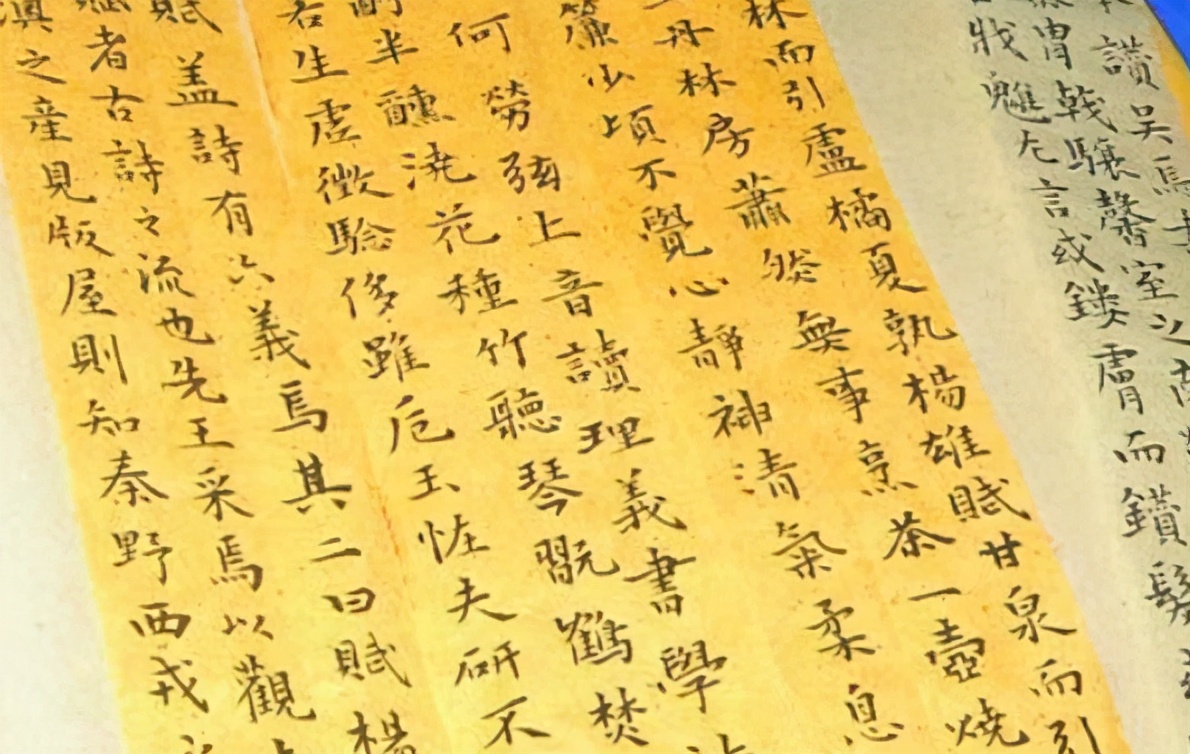 讚吳馬
冑戟驤馨室之
戕魋左言或鏤膚而鑽髮
林而引盧橘夏孰楊雄賦甘泉而引
丹林房蕭然無事烹茶一壺燒
簾少頃不覺心靜神清氣柔息
何勞弦上音讀理義書學
酌半醺澆花種竹聽琴翫鶴焚
若生虛徵驗侈雖卮玉恠夫研不
賦蓋詩有六義焉其二曰賦楊
賦者古詩之流也先王采焉以觀
之産見版屋則知秦野西戎